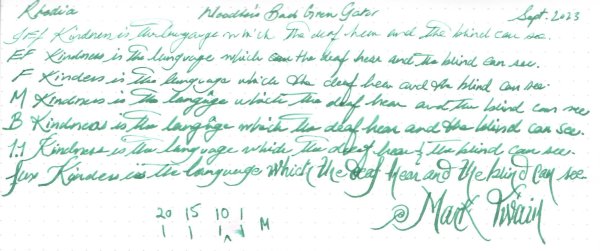 Rhodia Noodler's Bad Green Gator Sept. 2023
Kindness is the language which the deaf hear and the blind can see.
EF Kindness is the language which can the deaf hear and the blind can see.
F Kindess is the language which the deaf hear and the blind can see.
M Kindness is the langage which the deaf hear and the blind can see
B Kindness is the language which the deaf hear and the blind can see.
1.1 Kindness is the language which the deaf hear & the blind can see.
Kindess is the language which the deaf hear and the blind can see.
@ Mark Twain
20 15 10 1
1 1 1 1 M